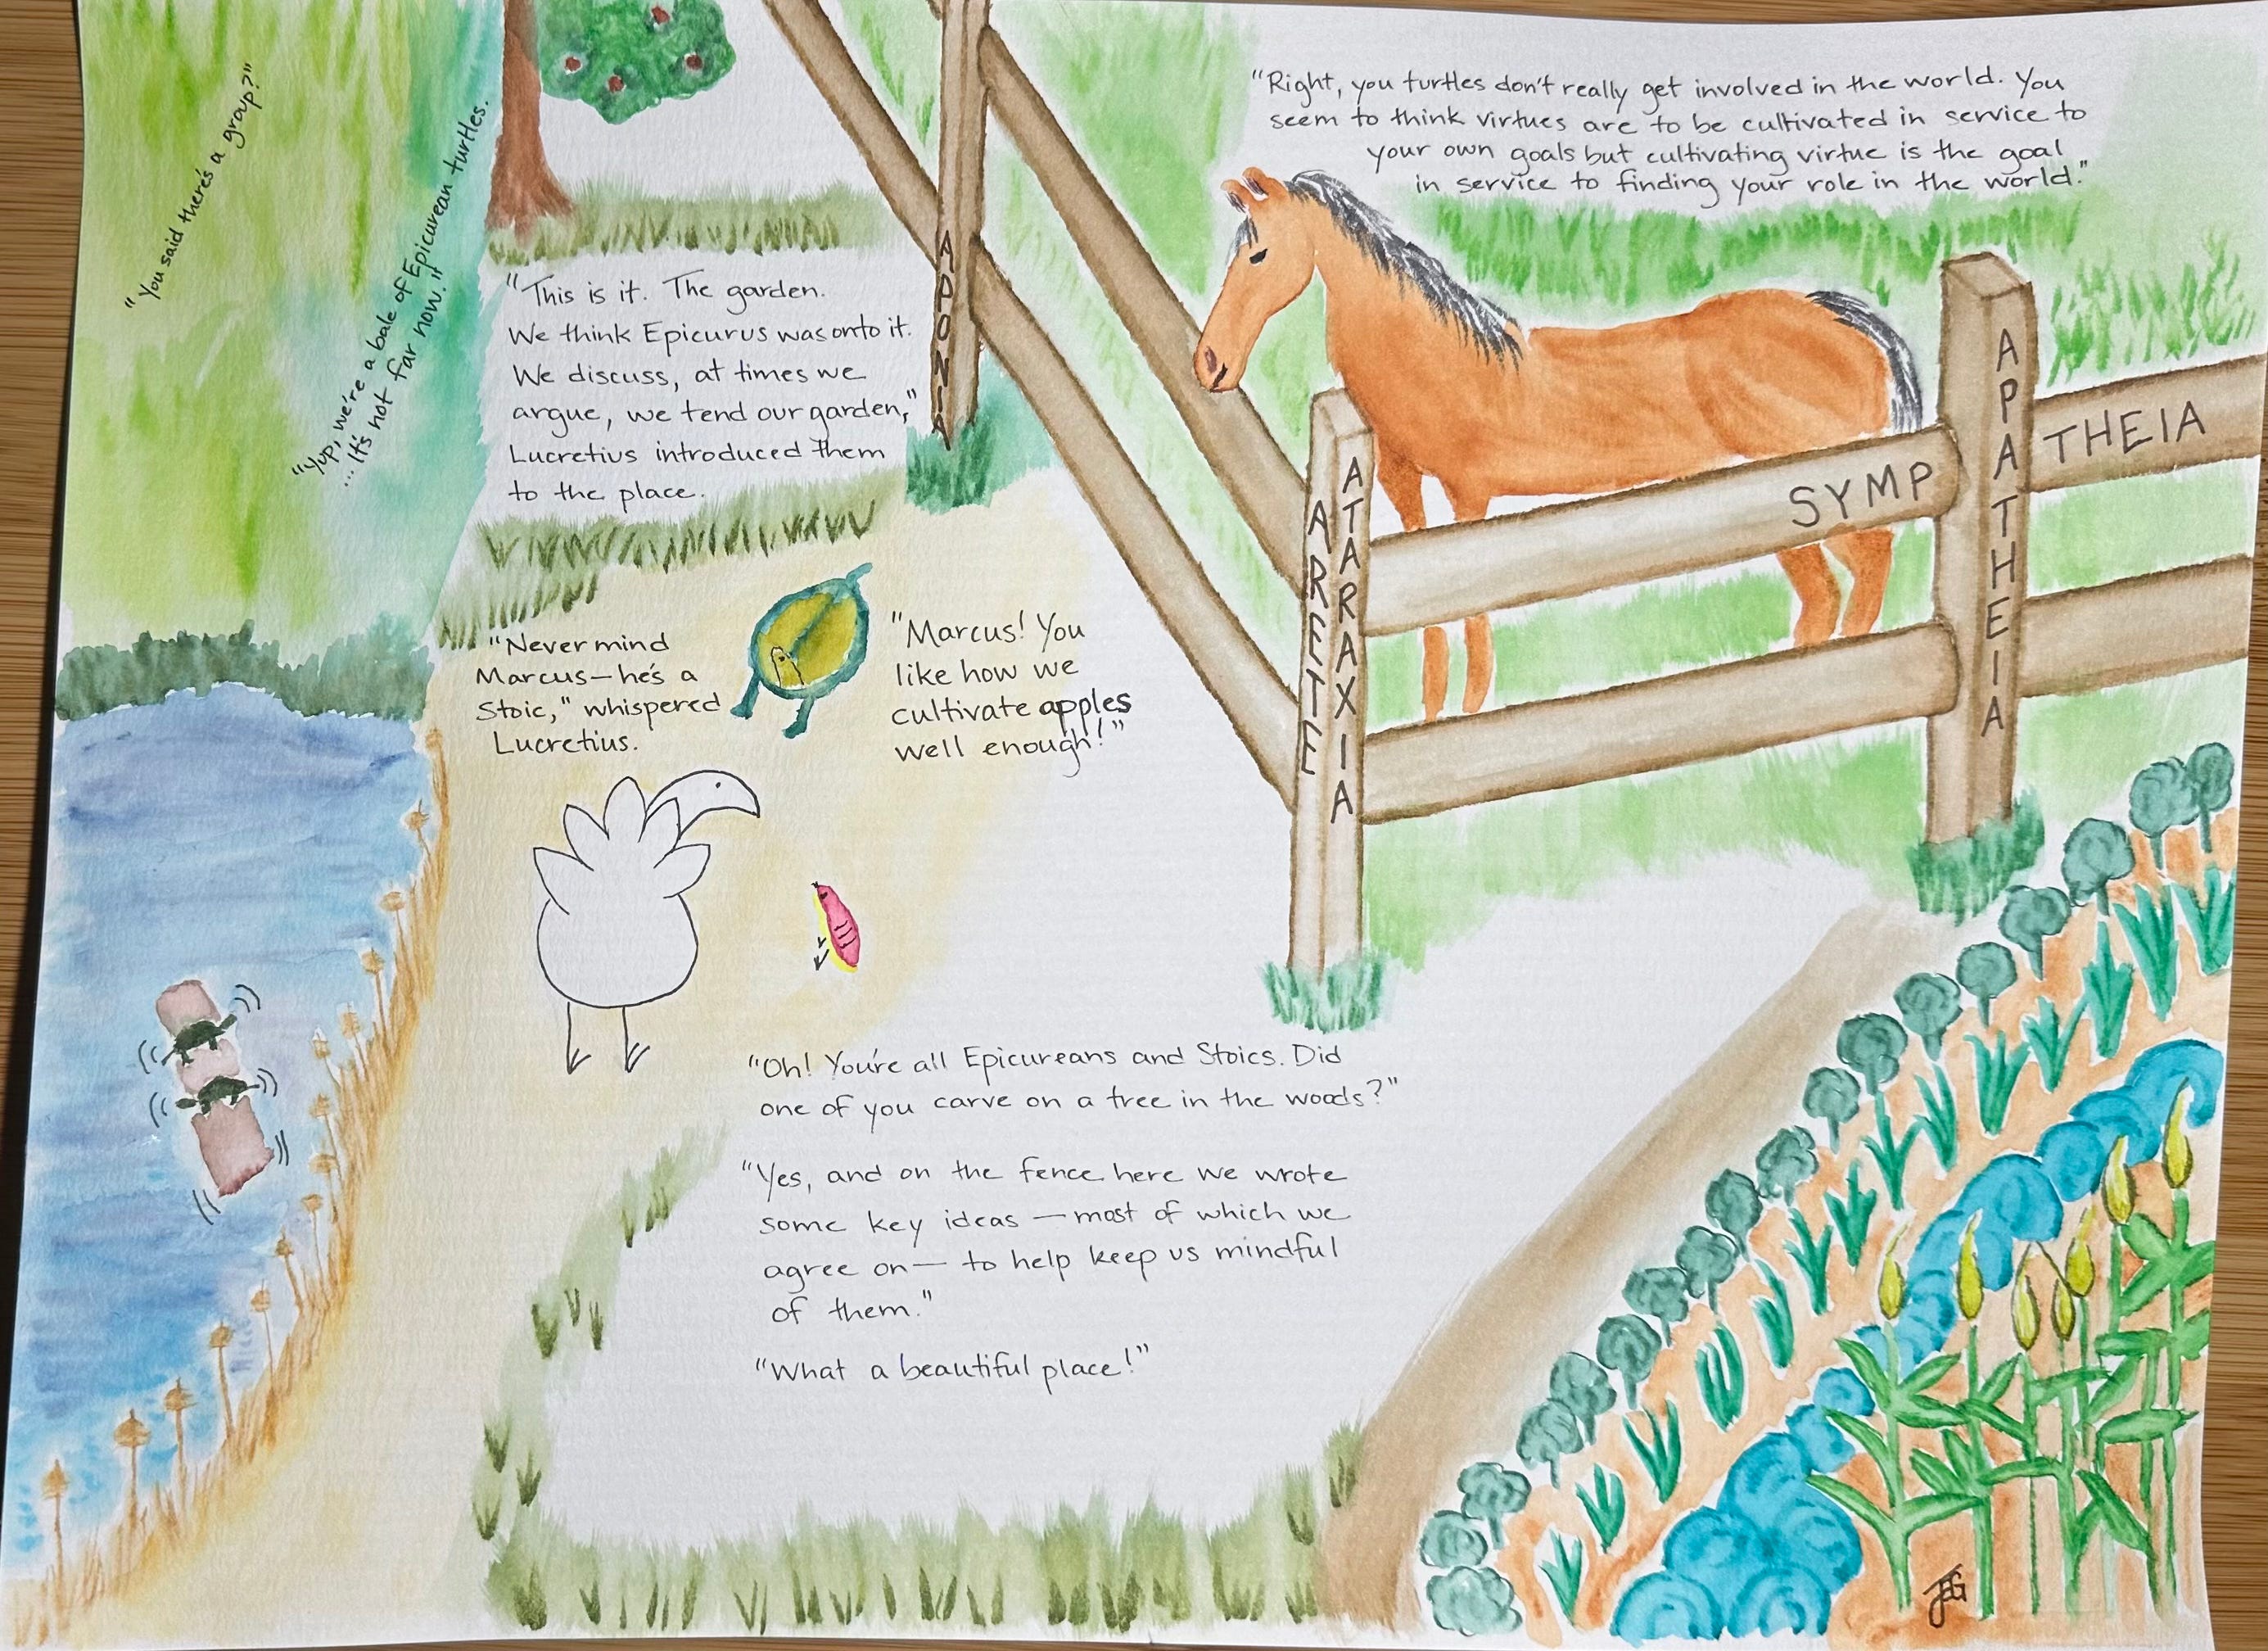 "You said there's a group?"
"Yup, we're a bale of Epicurean turtles.
... It's not far now."
"This is it. The garden.
We think Epicurus was onto it.
We discuss, at times we
argue, we tend our garden,"
Lucretius introduced them
to the place.
APONIA
"Right, you turtles don't really get involved in the world. You
seem to think virtues are to be cultivated in service to
your own goals but cultivating virtue is the goal
in service to finding your role in the world."
ARETE
ATARAXIA
SYMP
APATHEIA
THEIA
"Never mind
Marcus—he's a
Stoic," whispered
Lucretius.
"Marcus! You
like how we
cultivate apples
well enough!"
"Oh! You're all Epicureans and Stoics. Did
one of you carve on a tree in the woods?"
"Yes, and on the fence here we wrote
some key ideas — most of which we
agree on — to help keep us mindful
of them."
"What a beautiful place!"
JEG